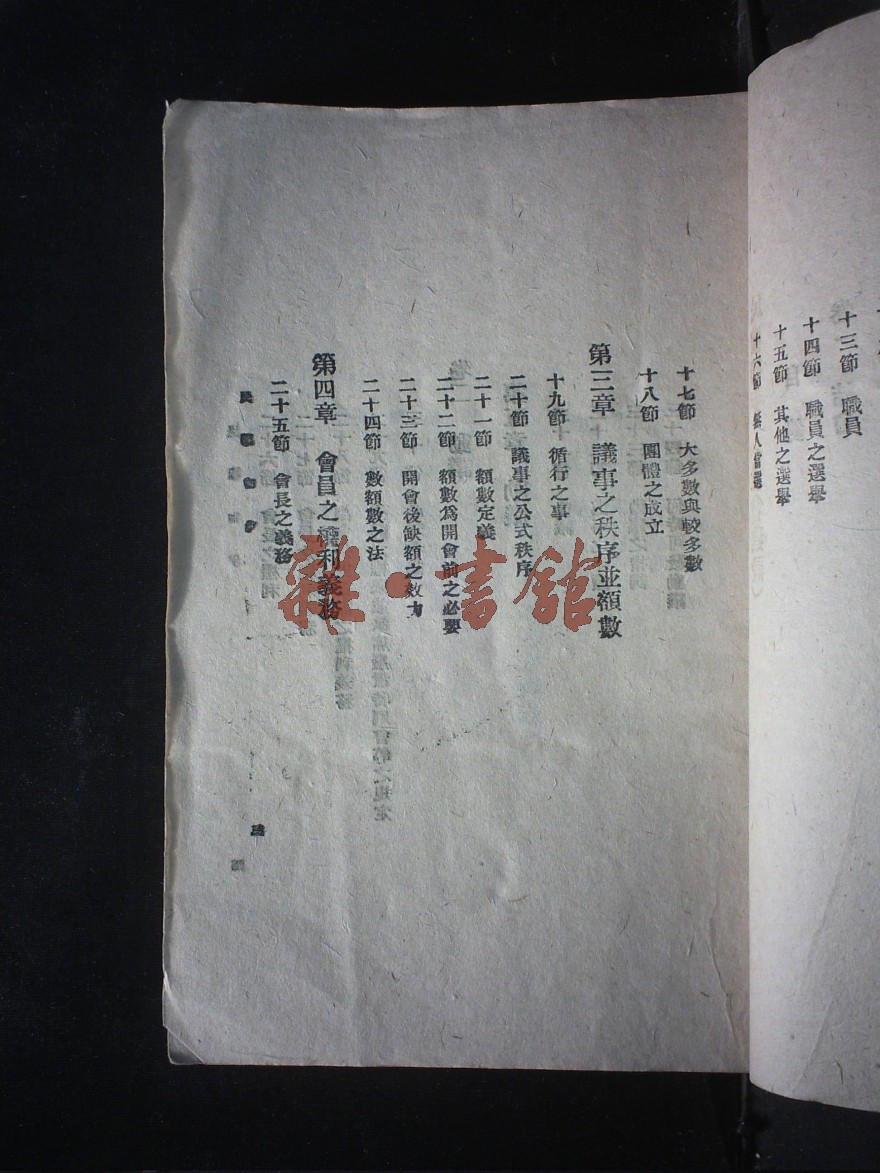 十三節　職員
十四節　職員之選舉
十五節　其他之選舉
十六節
十七節　大多數與較多數
十八節　團體之成立
第三章　議事之秩序並額數
十九節　循行之事
二十節　議事之公式秩序
二十一節　額數定義
二十二節　額數爲開會前之必要
二十三節　開會後缺額之效力
二十四節　數額數之法
第四章　會員之權利義務
二十五節　會長之義務
雜·書館